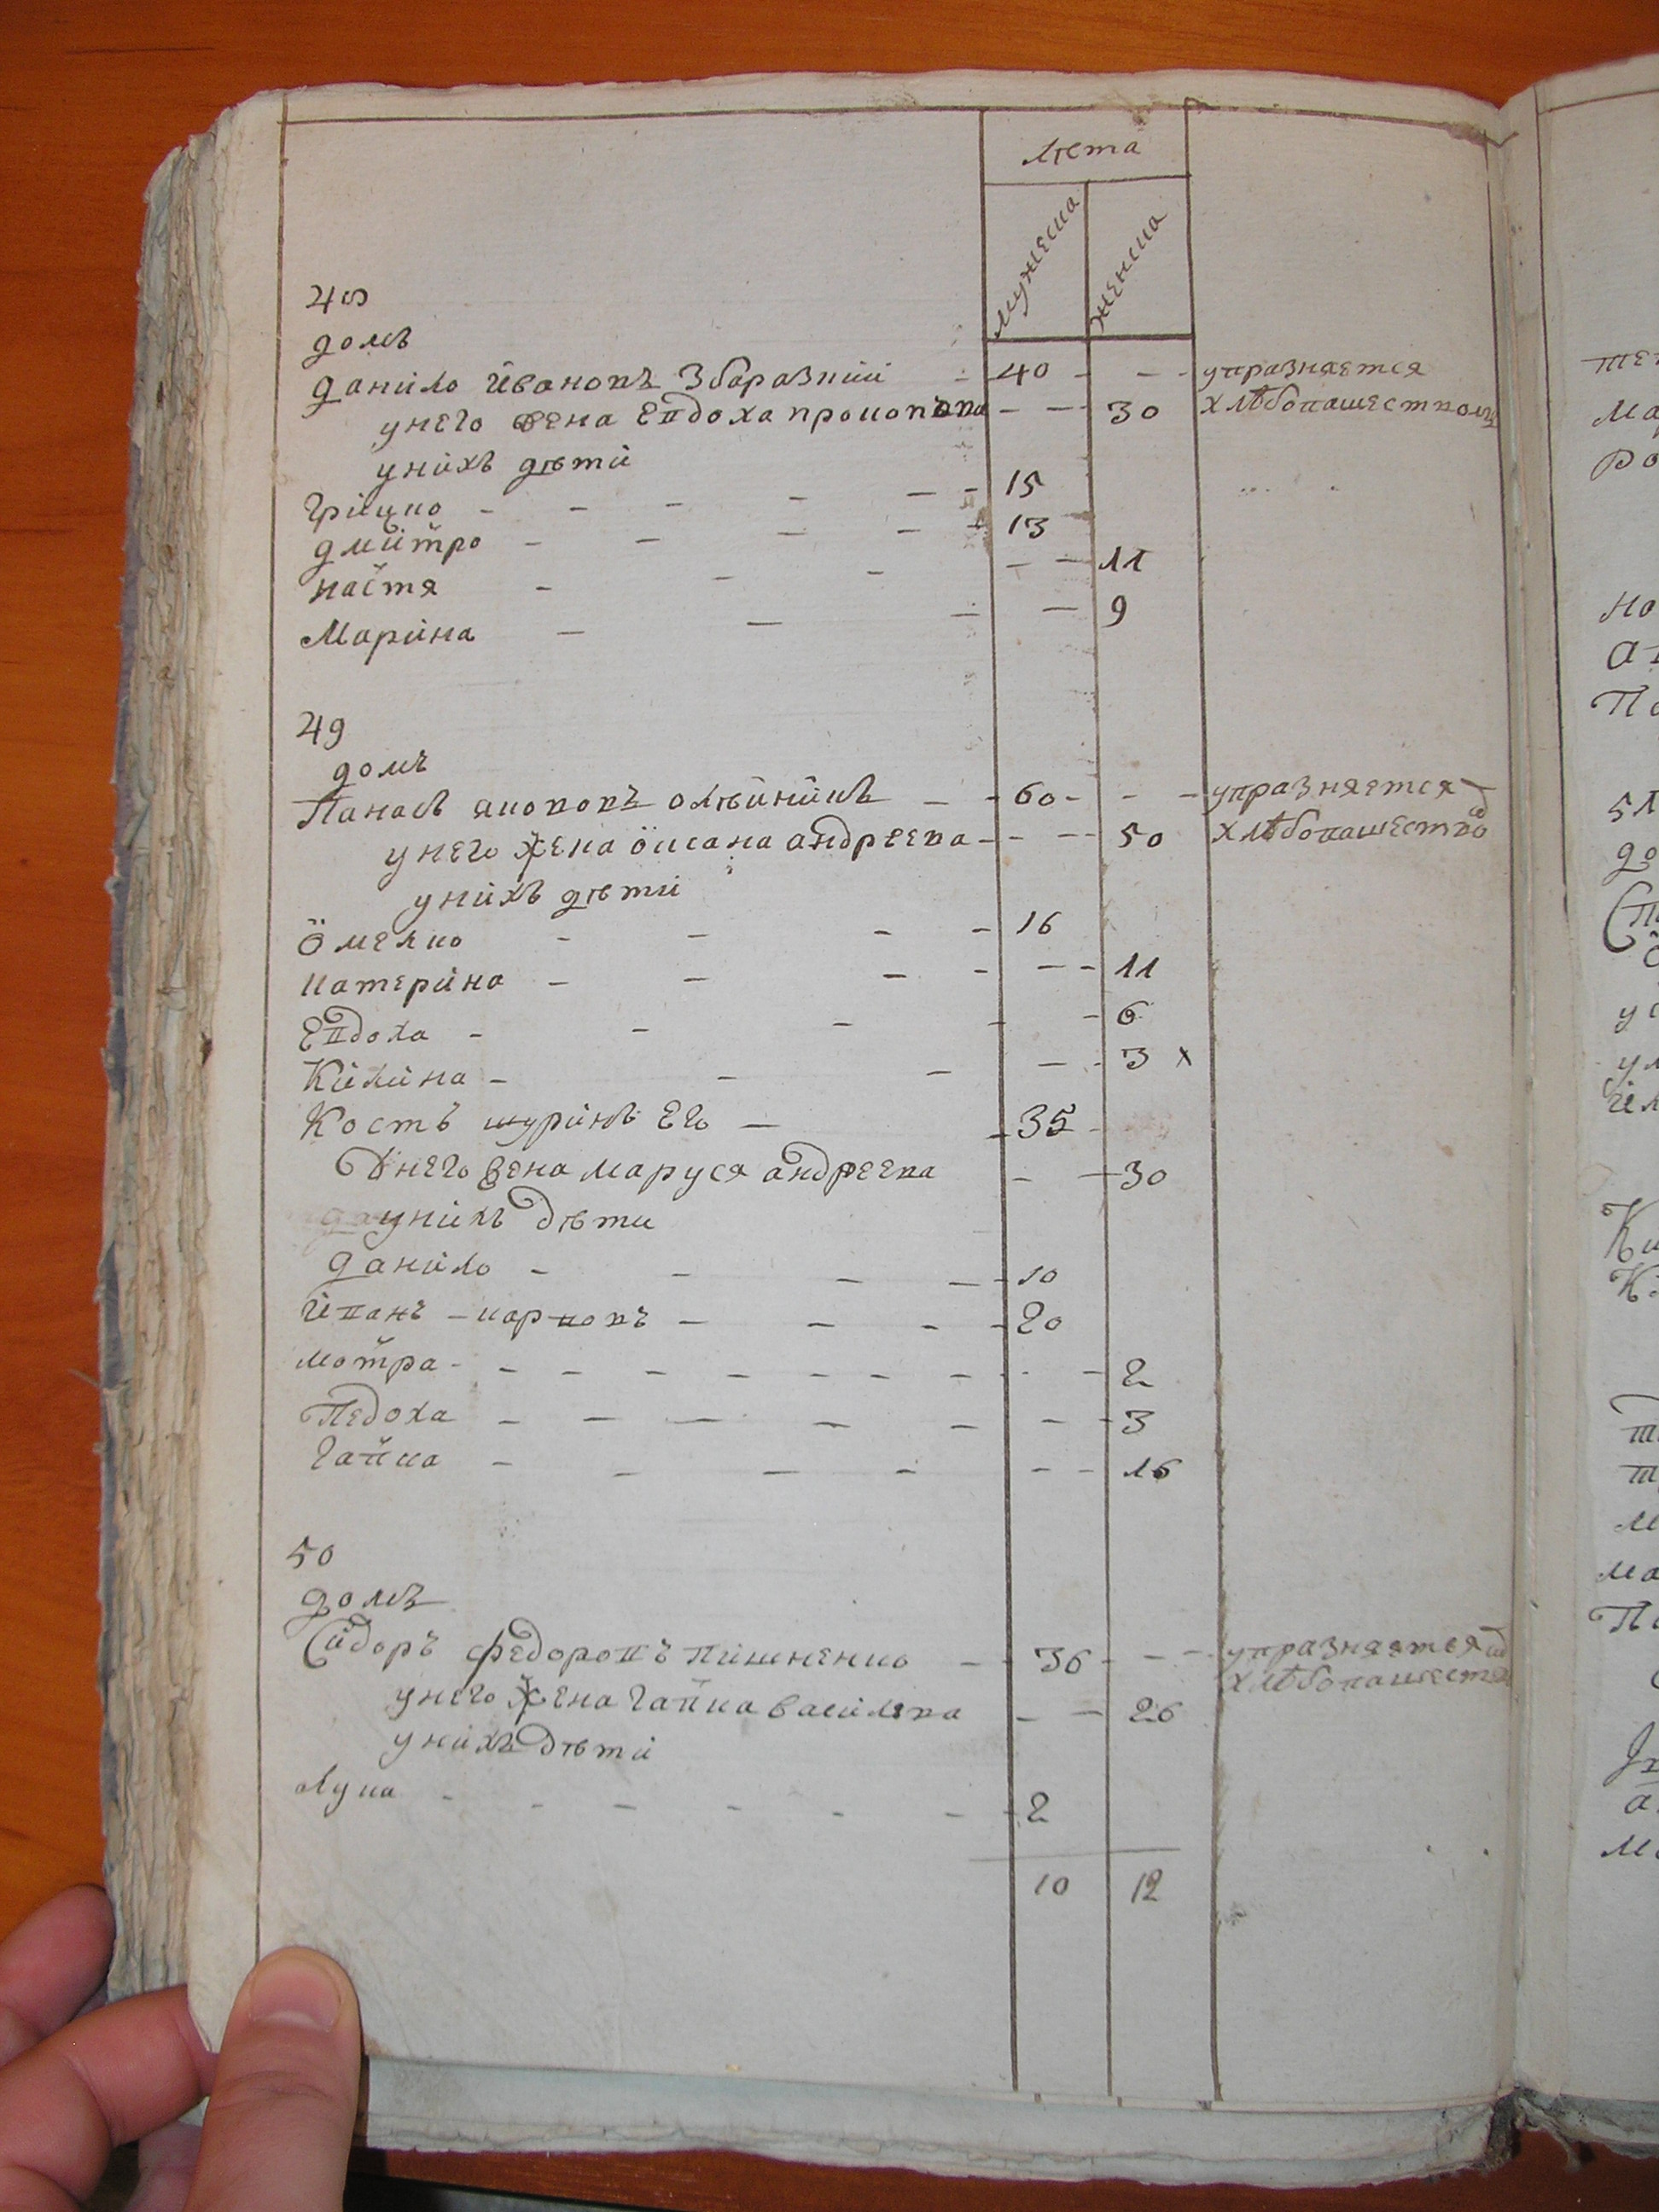 лѣта
мужеска
женска
48
домъ
данило Ивановъ Збаразкий - 40 - - - упразняется
у него жена Евдоха прокопова - - - 30 хлѣбопашествомъ
у нихъ дѣти
грицко - - - - - - 15
дмитро - - - - - 13
настя - - - - - 11
Марина - - - - 9
49
домъ
Панасъ якововъ олѣйникъ - - 60 - - - упразняется
у него жена Оксана андреева - - - 50 хлѣбопашество
у нихъ дѣти
Омелко - - - - 16
катерина - - - - - - 11
Евдоха - - - - - 6
Килина - - - - - 3 х
Кость шуринъ Его - - 35
У него жена маруся андреева - - 30
у нихъ дѣти
данило - - - - - 10
Иванъ - карповъ - - - - 20
мотра - - - - - - - - - - 2
Педоха - - - - - - - 3
гапка - - - - - - 16
50
домъ
Сидоръ федоровъ пишненко - 36 - - - упразняется
у него жена гапка василева - - 26 хлѣбопашеств
у нихъ дѣти
Лука - - - - - - - 2
10 12